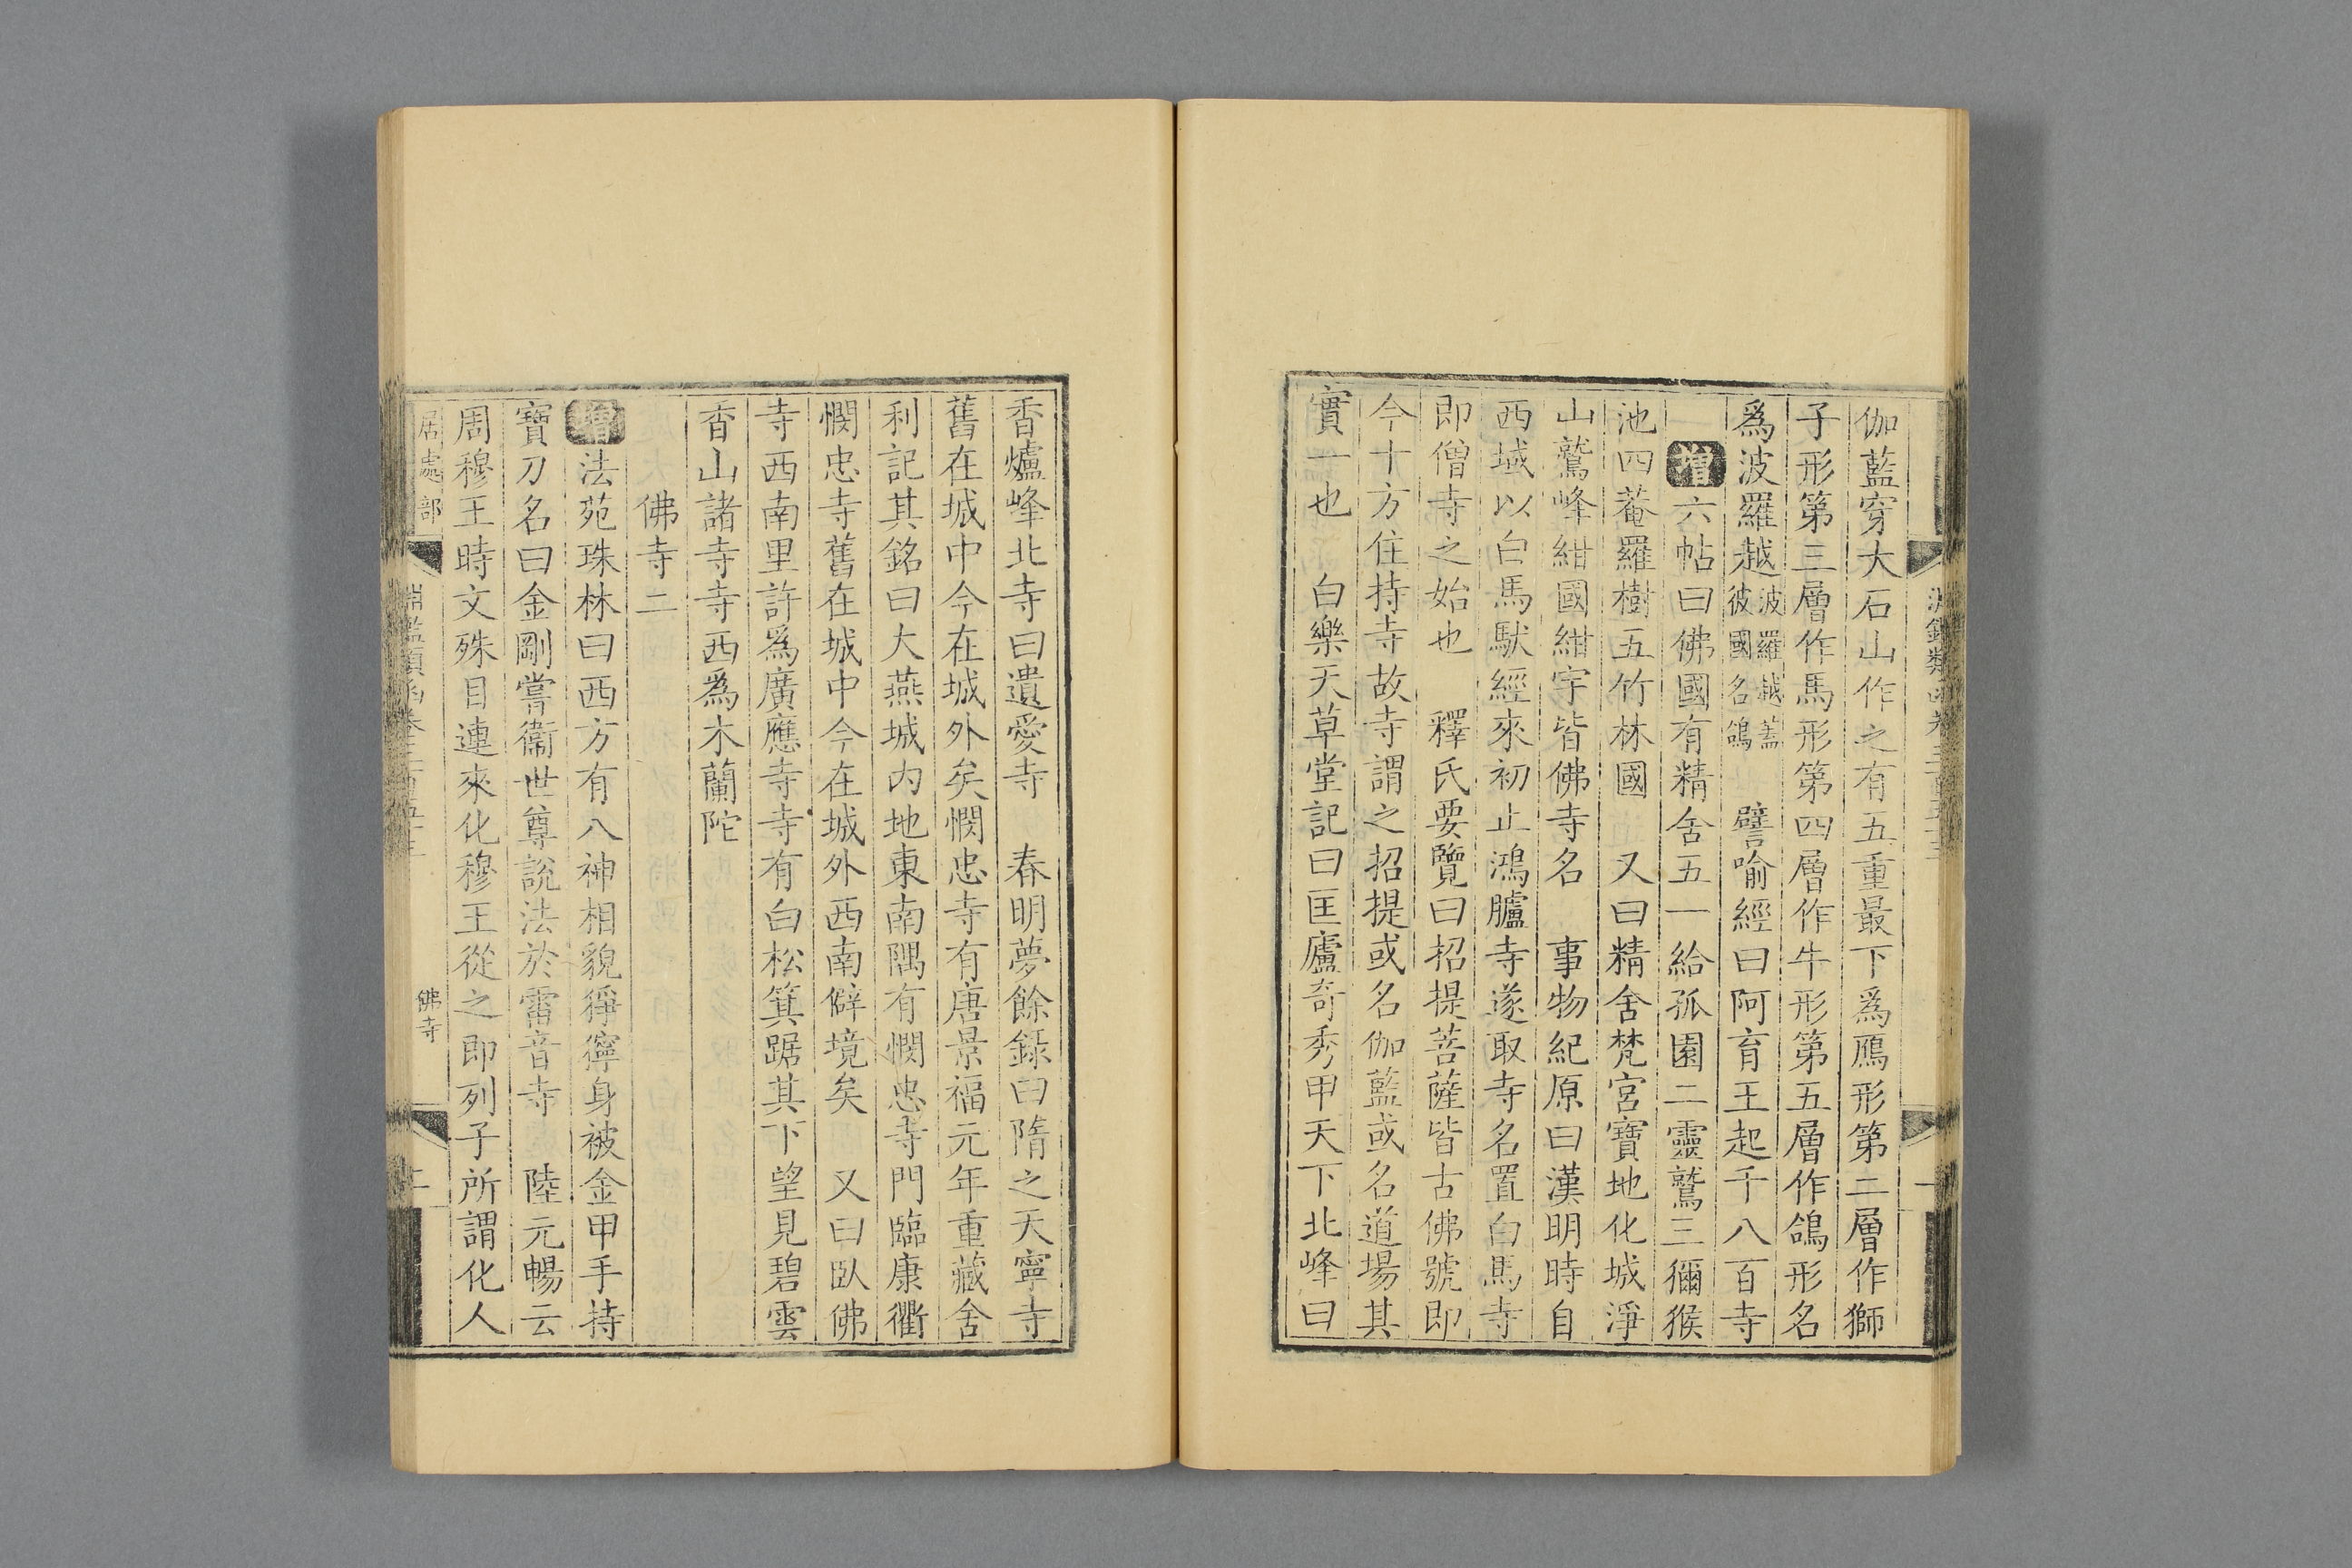 伽藍穿大石山作之有五重最下爲鴈形第二層作獅
子形第三層作馬形第四層作牛形第五層作鴿形名
爲波羅越波羅越蓋彼國名鴿 譬喻經曰阿育王起千八百寺
增六帖曰佛國有精舍五一給孤園二靈鷲三獼猴
池四菴羅樹五竹林國 又曰精舍梵宮寶地化城淨
山鷲峰紺國紺宇皆佛寺名 事物紀原曰漢明時自
西域以白馬馱經來初止鴻臚寺遂取寺名置白馬寺
即僧寺之始也 釋氏要覽曰招提菩薩皆古佛號即
今十方住持寺故寺謂之招提或名伽藍或名道場其
實一也 白樂天草堂記曰匡廬奇秀甲天下北峰曰
香爐峰北寺曰遺愛寺 春明夢餘錄曰隋之天寧寺
舊在城中今在城外矣憫忠寺有唐景福元年重藏舍
利記其銘曰大燕城内地東南隅有憫忠寺門臨康衢
憫忠寺舊在城中今在城外西南僻境矣 又曰臥佛
寺西南里許爲廣應寺寺有白松箕踞其下望見碧雲
香山諸寺寺西爲木蘭陀
佛寺二
增法苑珠林曰西方有八神相貌猙獰身被金甲手持
寶刀名曰金剛嘗衞世尊說法於雷音寺 陸元暢云
周穆王時文殊目連來化穆王從之即列子所謂化人
居處部
淵鑑類函卷三百五十三
佛寺
二